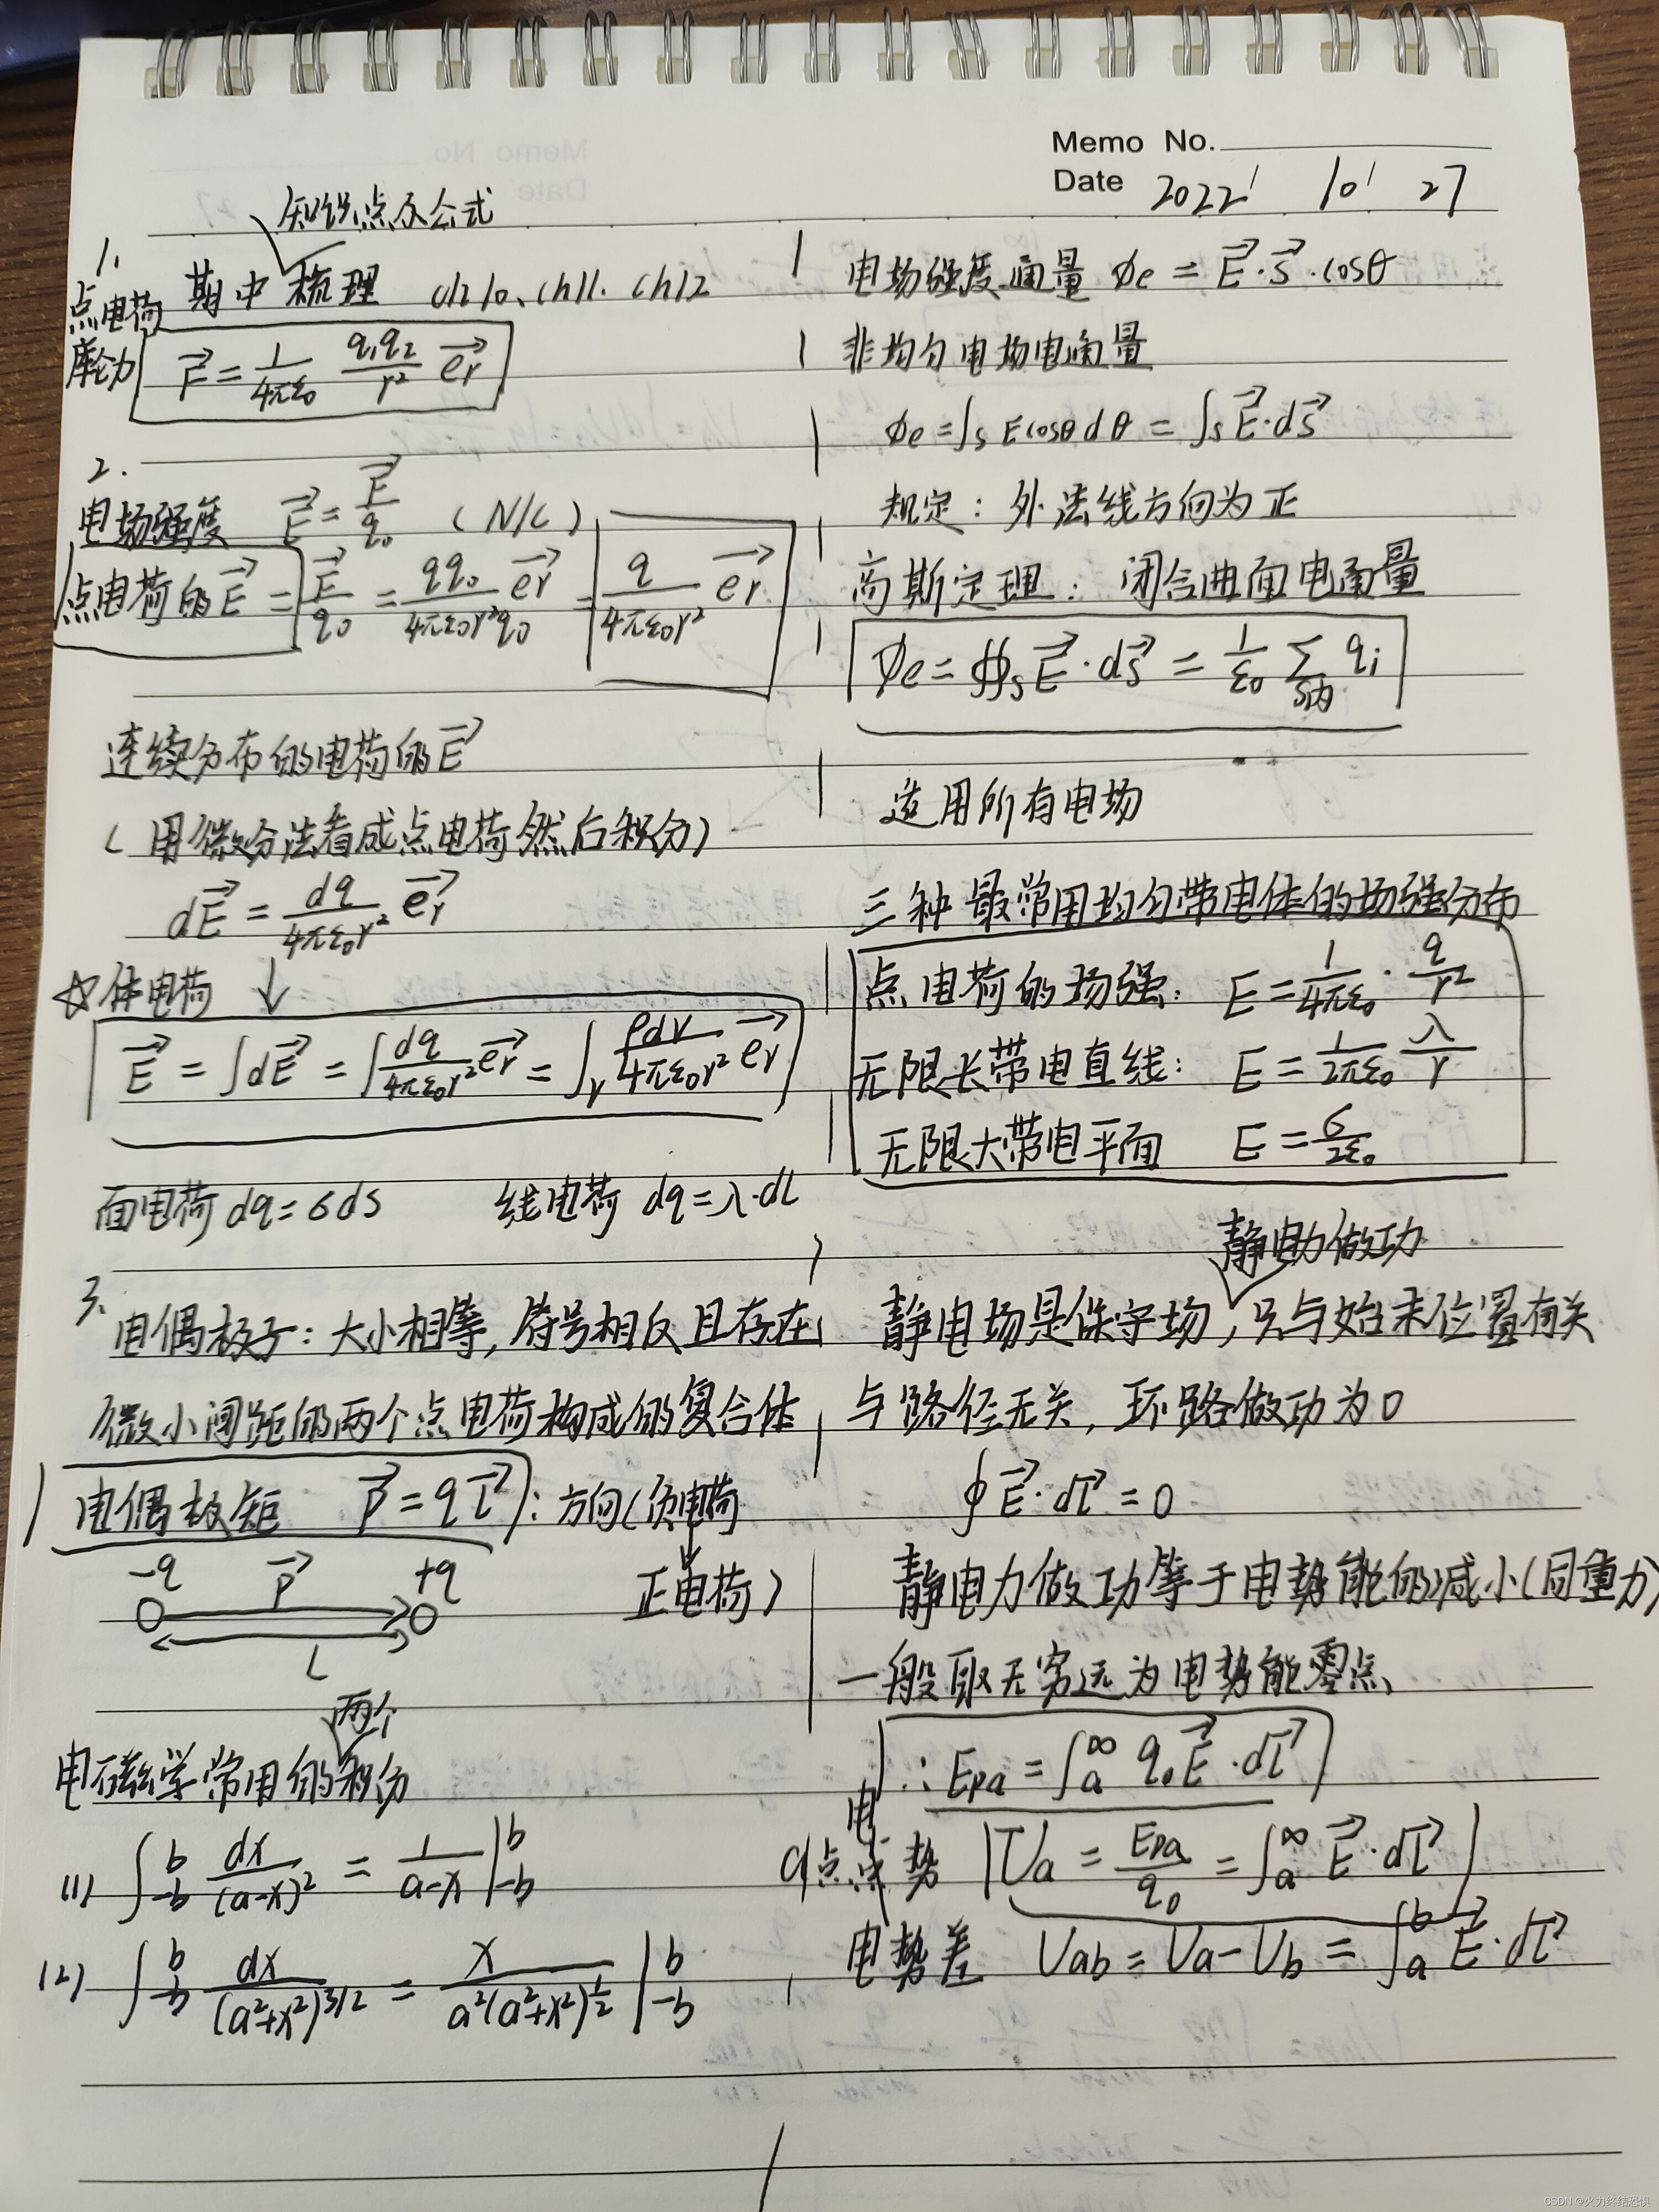 Memo No.
Date 2022' 10' 27
知识点及公式
期中梳理 ch10、ch11. ch12
1.
点电荷
库仑力 $\vec{F} = \frac{1}{4\pi\varepsilon_0} \frac{q_1 q_2}{r^2} \vec{e_r}$
2.
电场强度 $\vec{E} = \frac{\vec{F}}{q_0}$ (N/C)
点电荷的 $\vec{E} = \frac{\vec{F}}{q_0} = \frac{q q_0}{4\pi\varepsilon_0 r^2 q_0} \vec{e_r} = \frac{q}{4\pi\varepsilon_0 r^2} \vec{e_r}$
连续分布的电荷的 $\vec{E}$
(用微分法看成点电荷然后积分)
$d\vec{E} = \frac{dq}{4\pi\varepsilon_0 r^2} \vec{e_r}$
☆体电荷 ↓
$\vec{E} = \int d\vec{E} = \int \frac{dq}{4\pi\varepsilon_0 r^2} \vec{e_r} = \int_V \frac{\rho dV}{4\pi\varepsilon_0 r^2} \vec{e_r}$
面电荷 dq=σds 线电荷 dq=λ·dl
3.
电偶极子:大小相等,符号相反且存在
微小间距的两个点电荷构成的复合体
电偶极矩 $\vec{P} = q\vec{l}$ :方向(负电荷
↓
正电荷)
-q $\vec{P}$ +q
L
电磁学常用的两个积分
(1) $\int_{-b}^{b} \frac{dx}{(a-x)^2} = \frac{1}{a-x} |_{-b}^{b}$
(2) $\int_{-b}^{b} \frac{dx}{(a^2+x^2)^{3/2}} = \frac{x}{a^2(a^2+x^2)^{\frac{1}{2}}} |_{-b}^{b}$
电场强度通量 $\phi e = \vec{E} \cdot \vec{s} \cdot cos\theta$
非均匀电场电通量
$\phi e = \int_S E cos\theta d\theta = \int_S \vec{E} \cdot d\vec{s}$
规定:外法线方向为正
高斯定理:闭合曲面电通量
$\phi e = ∯_S \vec{E} \cdot d\vec{s} = \frac{1}{\varepsilon_0} \sum_{S内} q_i$
适用所有电场
三种最常用均匀带电体的场强分布
点电荷的场强: $E = \frac{1}{4\pi\varepsilon_0} \cdot \frac{q}{r^2}$
无限长带电直线: $E = \frac{1}{2\pi\varepsilon_0} \frac{\lambda}{r}$
无限大带电平面 $E = \frac{\sigma}{2\varepsilon_0}$
静电场是保守场,静电力做功只与始末位置有关
与路径无关,环路做功为0
$\oint \vec{E} \cdot d\vec{l} = 0$
静电力做功等于电势能的减小(同重力)
一般取无穷远为电势能零点
∴ $E_{pa} = \int_a^\infty q_0 \vec{E} \cdot d\vec{l}$
a点电势 $U_a = \frac{E_{pa}}{q_0} = \int_a^\infty \vec{E} \cdot d\vec{l}$
电势差 $U_{ab} = U_a - U_b = \int_a^b \vec{E} \cdot d\vec{l}$
CSDN @火力终结恐惧